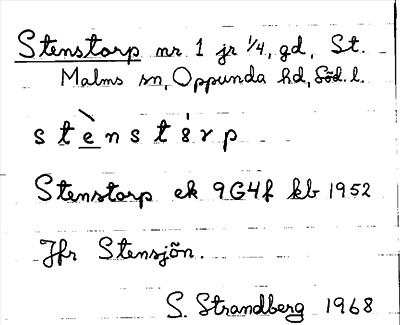 Stenstorp nr 1 jr 1/4, gd, St.
Malms sn, Oppunda hd, Söd. l.
s t è n s t 8 r p
Stenstorp ek 9G4f kb 1952
Jfr Stensjön.
S. Strandberg 1968